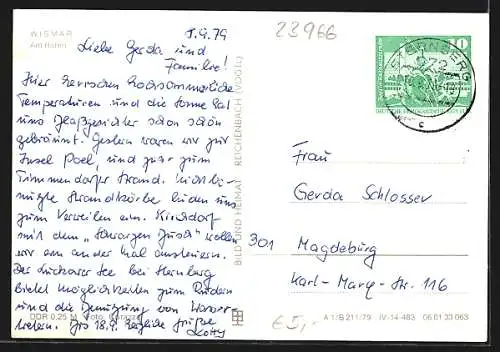 WISMAR
Am Hafen
1.9.79
23966
Liebe Gerda und
Familie!
Hier herrschen hochsommerliche
Temperaturen und die Sonne hat
uns schon schön
gebräunt. Gestern waren wir zur
Insel Poel, und zwar zum
Timmendorfer Strand. Nicht be-
nutzte Strandkörbe luden uns
zum Verweilen ein. Kirchdorf
mit dem „Schwarzen Busch" wollen
wir ein ander Mal ansteuern.
Der See bei Sternberg
bietet Möglichkeiten zum Rudern
und die Benutzung von Wasser-
Bis 18.9. Herzliche Grüße
DDR 0,25 M Foto:
BILD UND HEIMAT REICHENBACH (VOGTL)
10
STERNBERG
272
c
Frau
Gerda Schlosser
301 Magdeburg
Karl-Marx-Str. 116
A 1/B 211/79 IV-14-483 06 01 33 063
€5,-